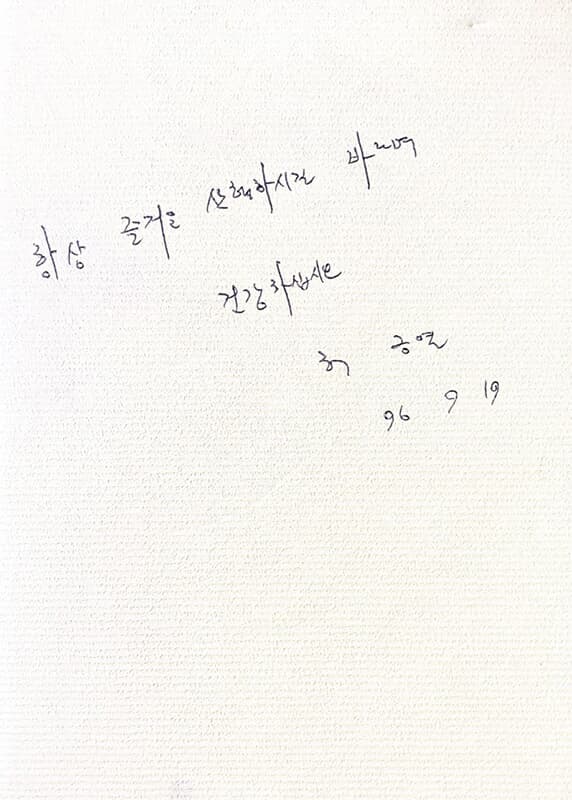 항상 즐거운 산행하시길 바라며
건강하십시오
허 긍열
96 9 19